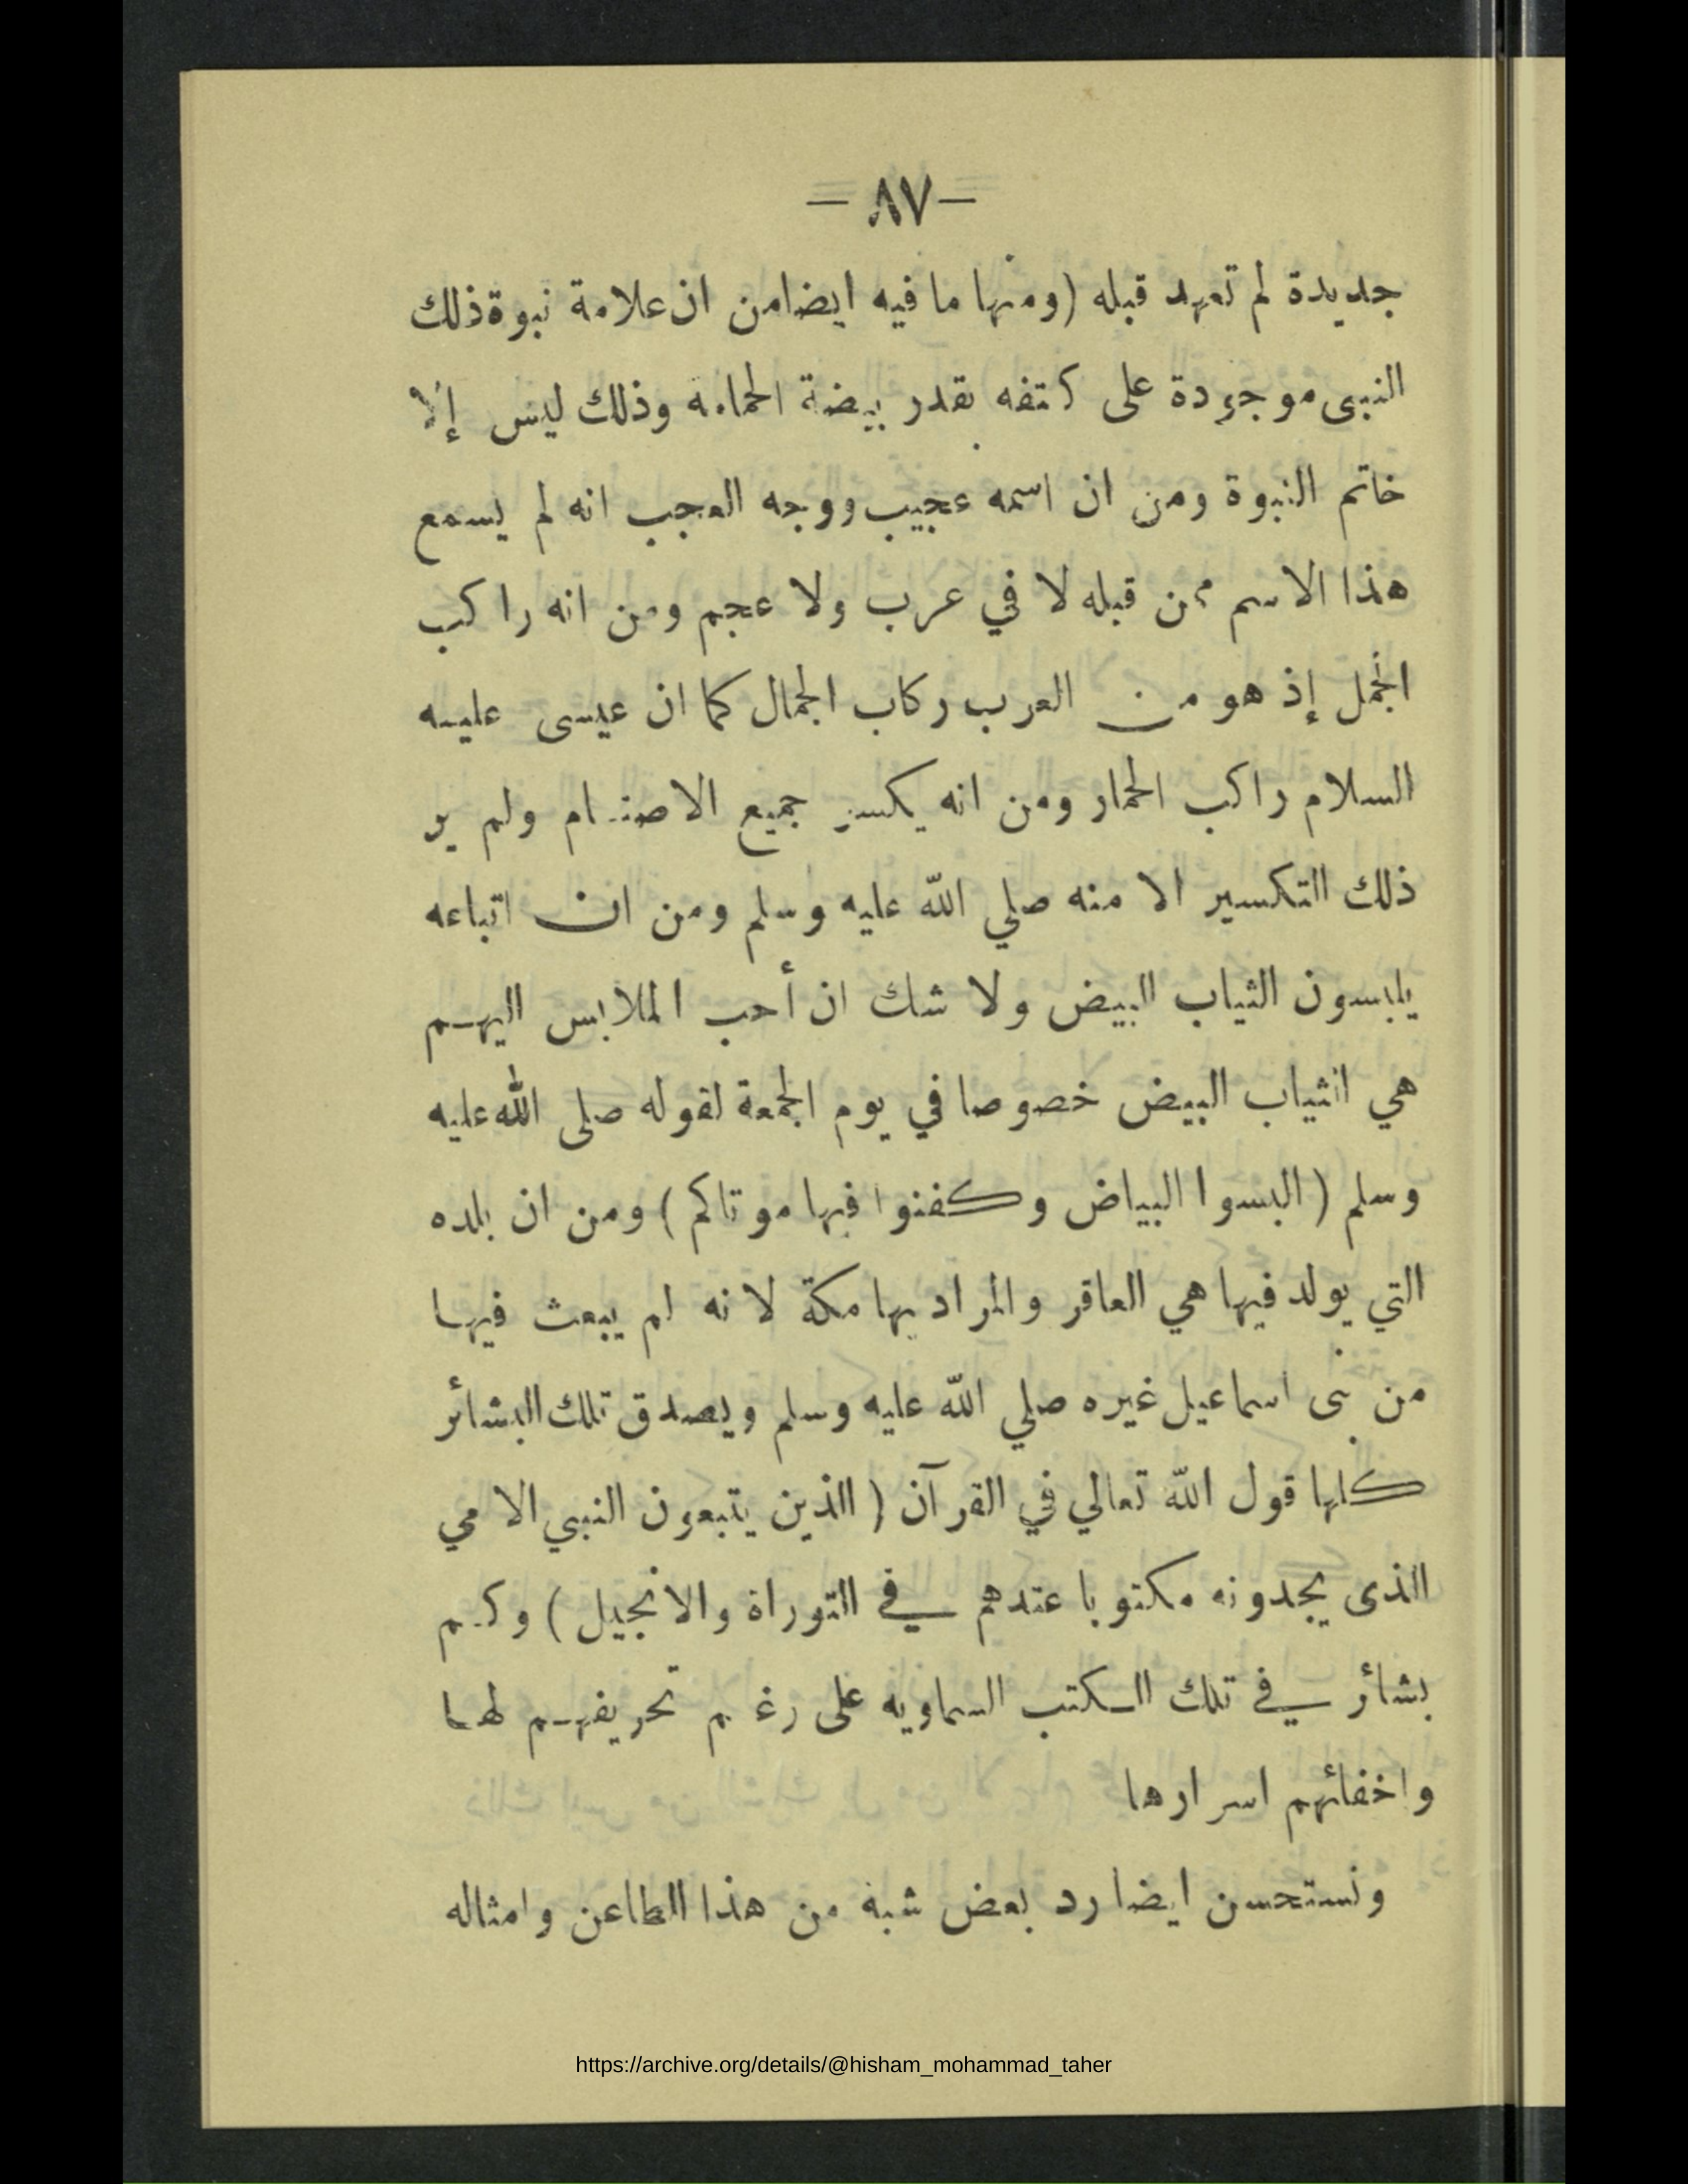 — ٨٧ —
جديدة لم تعهد قبله (ومنها ما فيه ايضا من ان علامة نبوة ذلك
النبى موجودة على كتفه بقدر بيضة الحمامه وذلك ليس إلا
خاتم النبوة ومن ان اسمه عجيب ووجه العجب انه لم يسمع
هذا الاسم ممن قبله لا في عرب ولا عجم ومن انه راكب
الجمل إذ هو من العرب ركاب الجمال كما ان عيسى عليه
السلام راكب الحمار ومن انه يكسر جميع الاصنام ولم ير
ذلك التكسير الا منه صلي الله عليه وسلم ومن ان اتباعه
يلبسون الثياب البيض ولا شك ان أحب الملابس اليهم
هي الثياب البيض خصوصا في يوم الجمعة لقوله صلى الله عليه
وسلم (البسوا البياض وكفنوا فيها موتاكم) ومن ان بلده
التي يولد فيها هي العاقر والمراد بها مكة لانه لم يبعث فيها
من بنى اسماعيل غيره صلي الله عليه وسلم ويصدق تلك البشائر
كلها قول الله تعالي في القرآن (الذين يتبعون النبي الامي
الذى يجدونه مكتوبا عندهم في التوراة والانجيل) وكم
بشائر في تلك الكتب السماويه على رغم تحريفهم لها
واخفائهم اسرارها
ونستحسن ايضا رد بعض شبه من هذا الطاعن وامثاله
https://archive.org/details/@hisham_mohammad_taher